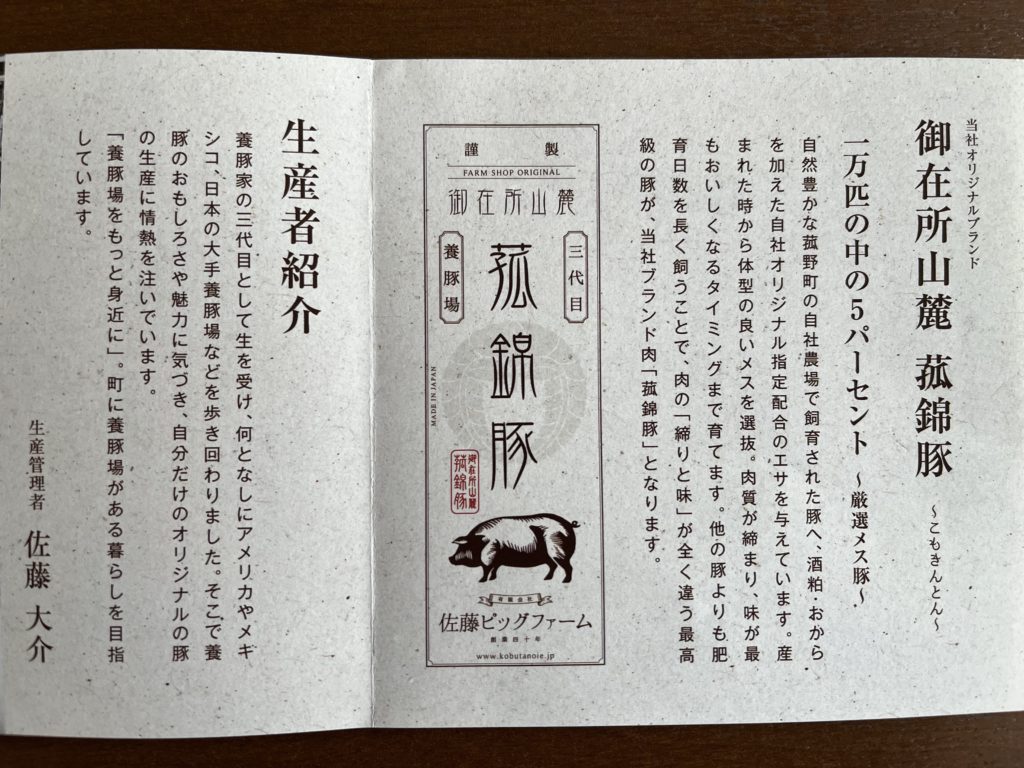 当社オリジナルブランド
御在所山麓 菰錦豚 〜こもきんとん〜
一万匹の中の5パーセント 〜厳選メス豚〜
自然豊かな菰野町の自社農場で飼育された豚へ、酒粕・おから
を加えた自社オリジナル指定配合のエサを与えています。産
まれた時から体型の良いメスを選抜。肉質が締まり、味が最
もおいしくなるタイミングまで育てます。他の豚よりも肥
育日数を長く飼うことで、肉の「締りと味」が全く違う最高
級の豚が、当社ブランド肉「菰錦豚」となります。
謹製
FARM SHOP ORIGINAL
御在所山麓
三代目
菰錦豚
養豚場
MADE IN JAPAN
御在所山麓
菰錦豚
有限会社
佐藤ピッグファーム
創業四十年
www.kobutanoie.jp
生産者紹介
養豚家の三代目として生を受け、何となしにアメリカやメキ
シコ、日本の大手養豚場などを歩き回わりました。そこで養
豚のおもしろさや魅力に気づき、自分だけのオリジナルの豚
の生産に情熱を注いでいます。
「養豚場をもっと身近に」。町に養豚場がある暮らしを目指
しています。
生産管理者 佐藤 大介